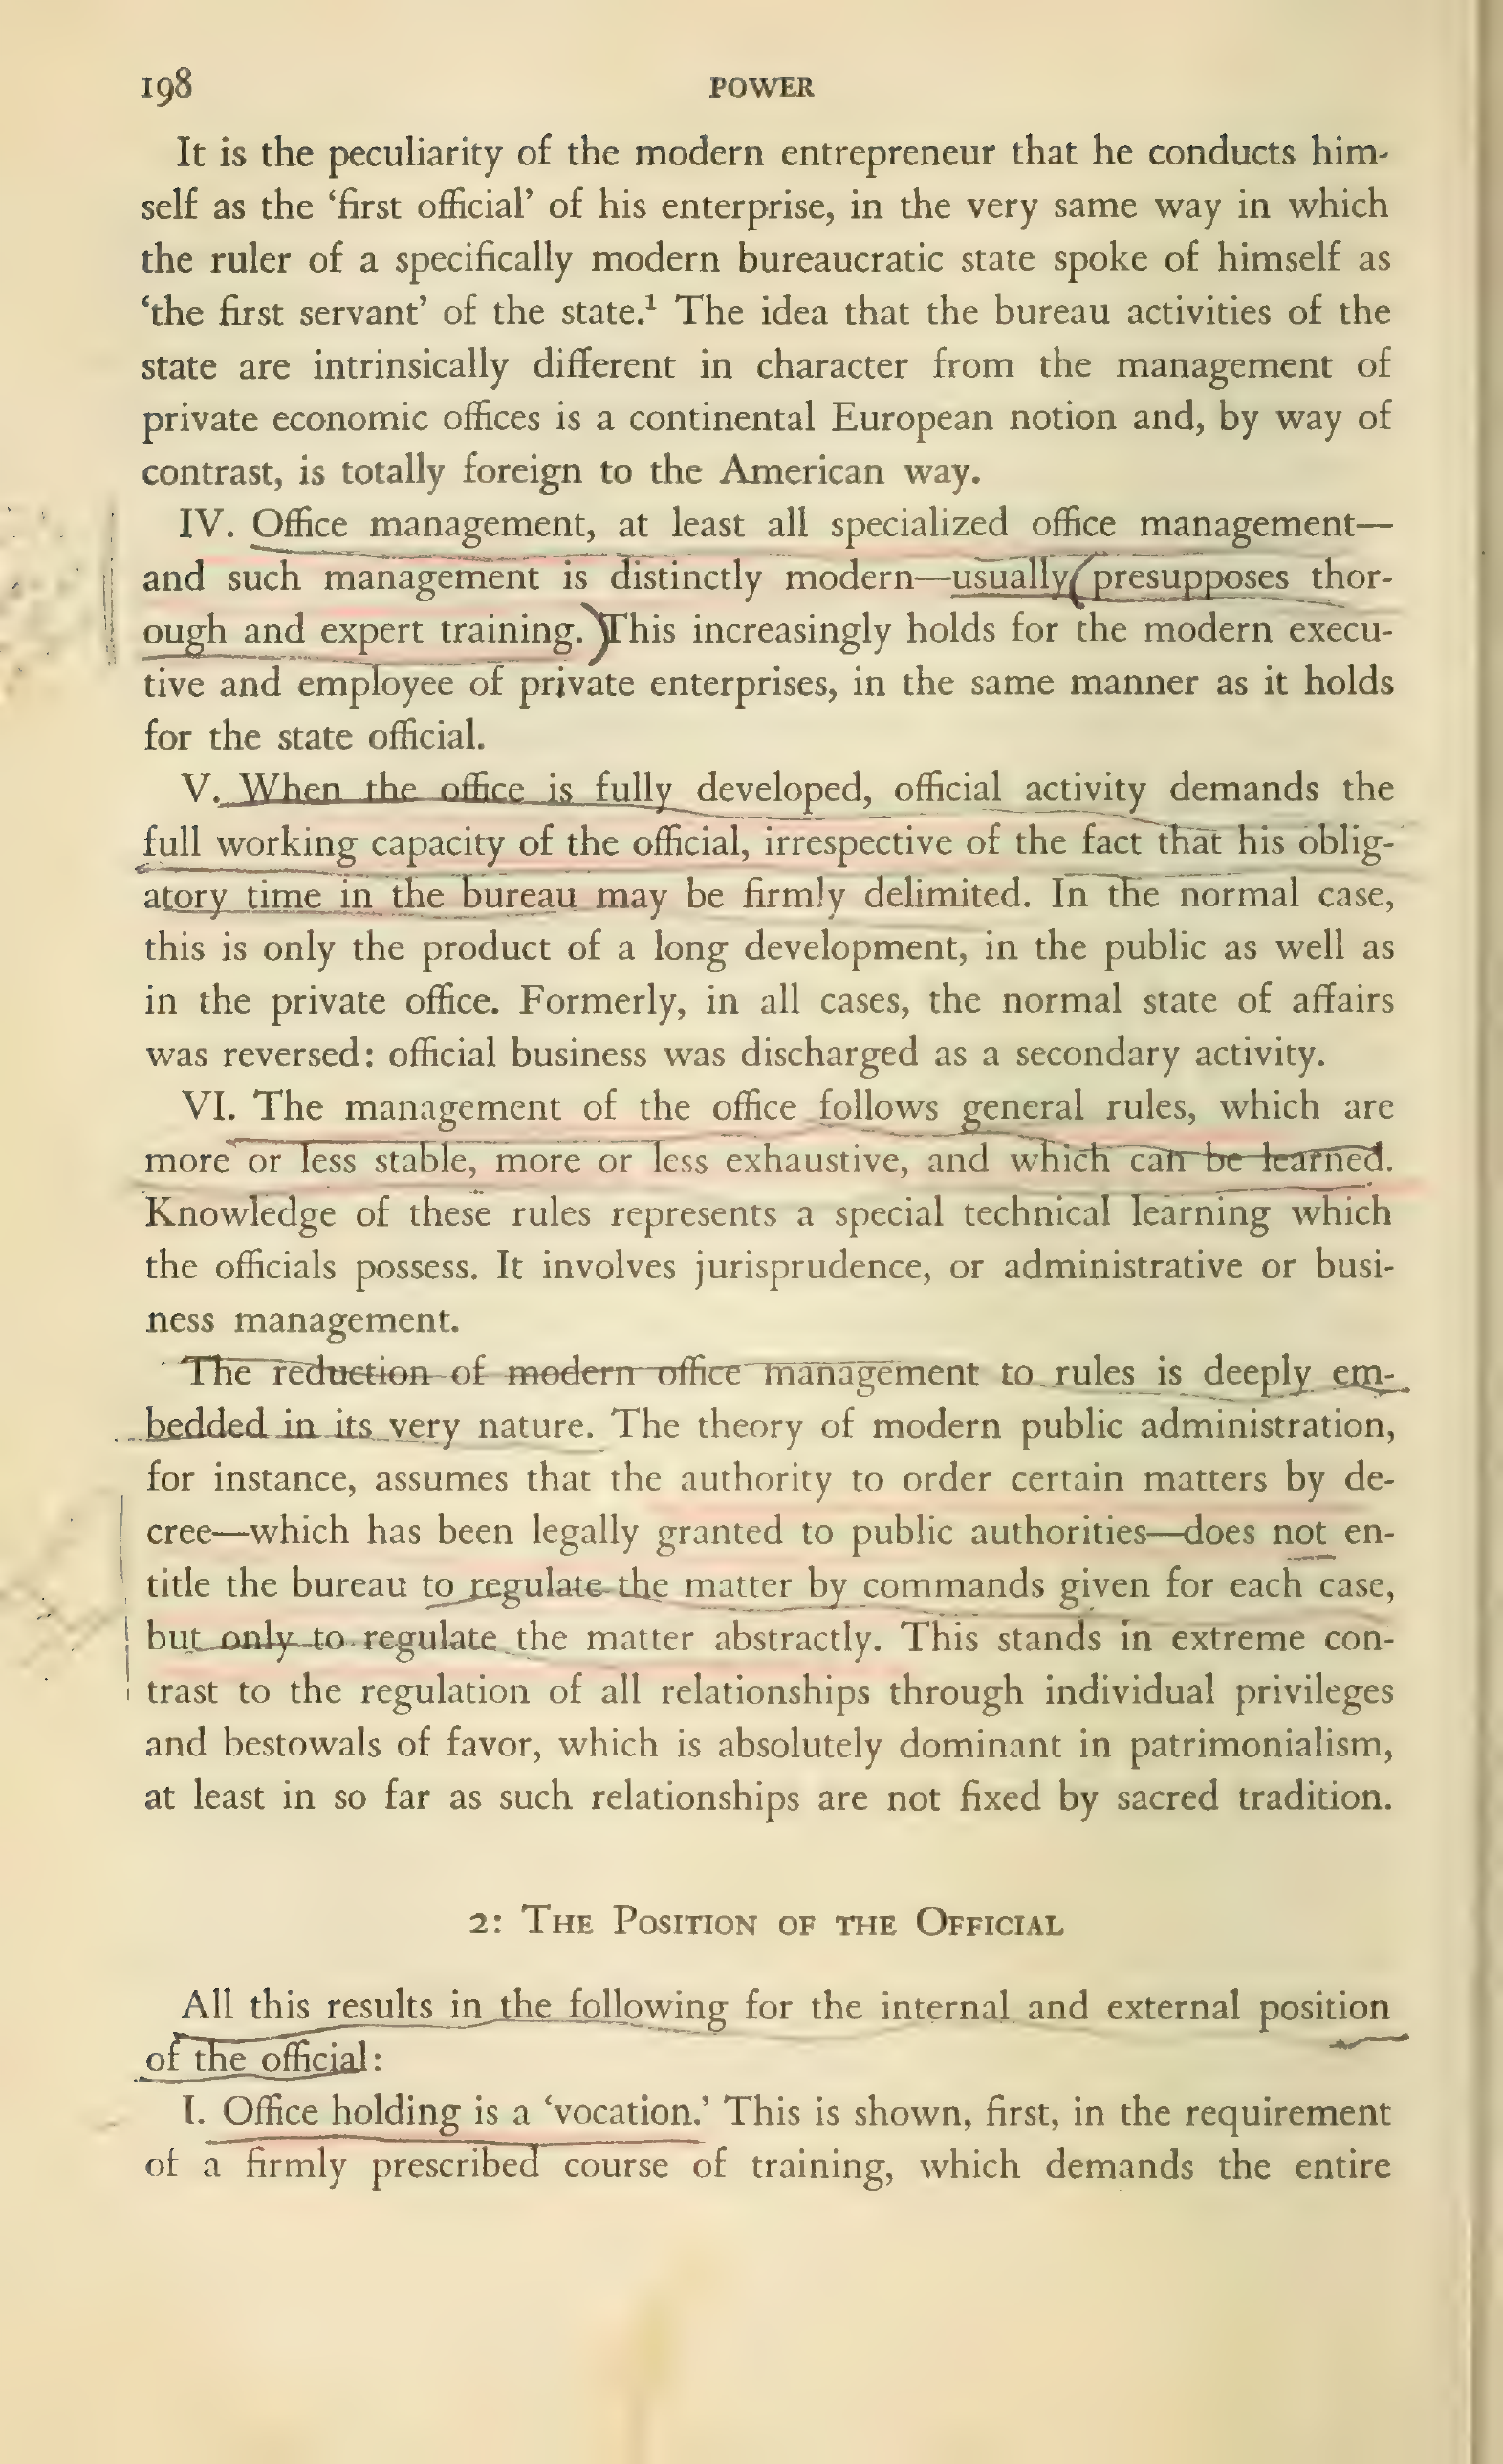 198 POWER
It is the peculiarity of the modern entrepreneur that he conducts him-
self as the ‘first official’ of his enterprise, in the very same way in which
the ruler of a specifically modern bureaucratic state spoke of himself as
‘the first servant’ of the state.¹ The idea that the bureau activities of the
state are intrinsically different in character from the management of
private economic offices is a continental European notion and, by way of
contrast, is totally foreign to the American way.
IV. Office management, at least all specialized office management—
and such management is distinctly modern—usually (presupposes thor-
ough and expert training.) This increasingly holds for the modern execu-
tive and employee of private enterprises, in the same manner as it holds
for the state official.
V. When the office is fully developed, official activity demands the
full working capacity of the official, irrespective of the fact that his oblig-
atory time in the bureau may be firmly delimited. In the normal case,
this is only the product of a long development, in the public as well as
in the private office. Formerly, in all cases, the normal state of affairs
was reversed: official business was discharged as a secondary activity.
VI. The management of the office follows general rules, which are
more or less stable, more or less exhaustive, and which can be learned.
Knowledge of these rules represents a special technical learning which
the officials possess. It involves jurisprudence, or administrative or busi-
ness management.
The reduction of modern office management to rules is deeply em-
bedded in its very nature. The theory of modern public administration,
for instance, assumes that the authority to order certain matters by de-
cree—which has been legally granted to public authorities—does not en-
title the bureau to regulate the matter by commands given for each case,
but only to regulate the matter abstractly. This stands in extreme con-
trast to the regulation of all relationships through individual privileges
and bestowals of favor, which is absolutely dominant in patrimonialism,
at least in so far as such relationships are not fixed by sacred tradition.
2: The Position of the Official
All this results in the following for the internal and external position
of the official:
I. Office holding is a ‘vocation.’ This is shown, first, in the requirement
of a firmly prescribed course of training, which demands the entire